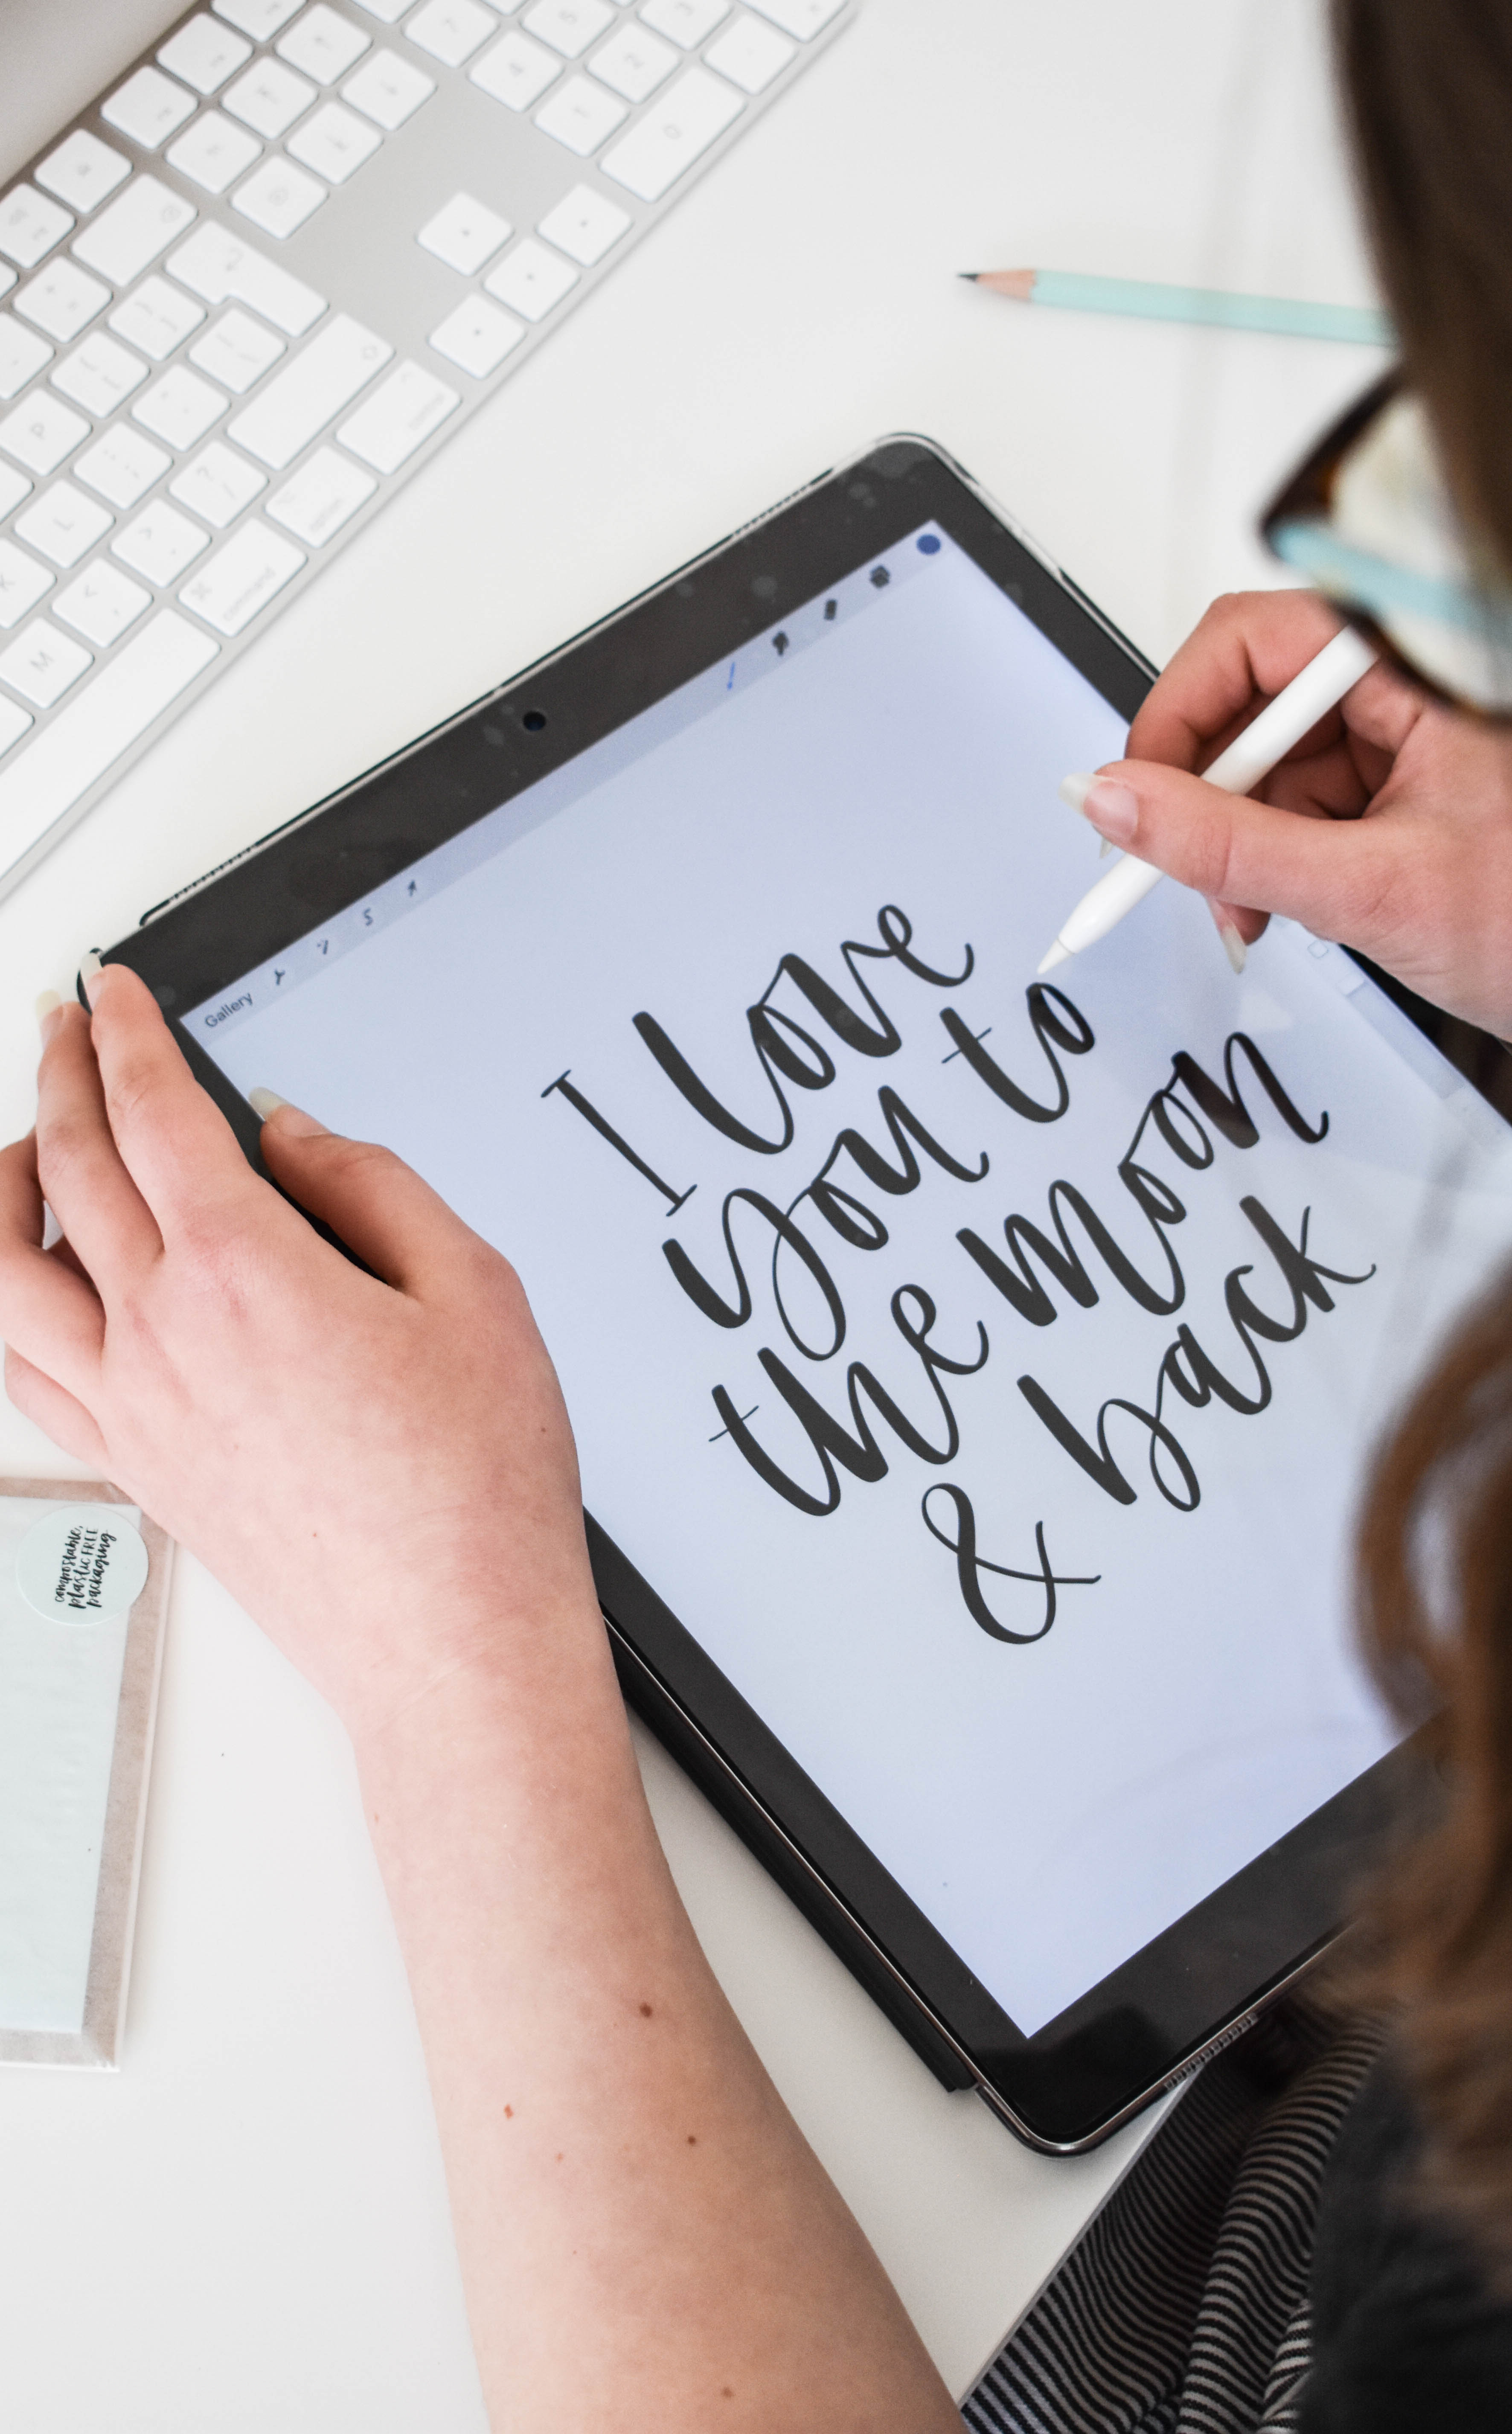 Gallery
I love
you to
the moon
& back
compostable,
plastic FREE
packaging
command
option
P
L
K
M